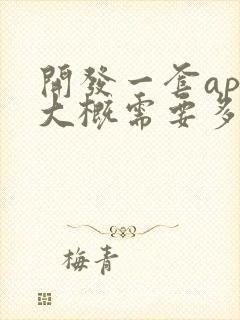 開發一套ap
大概需要多
梅青